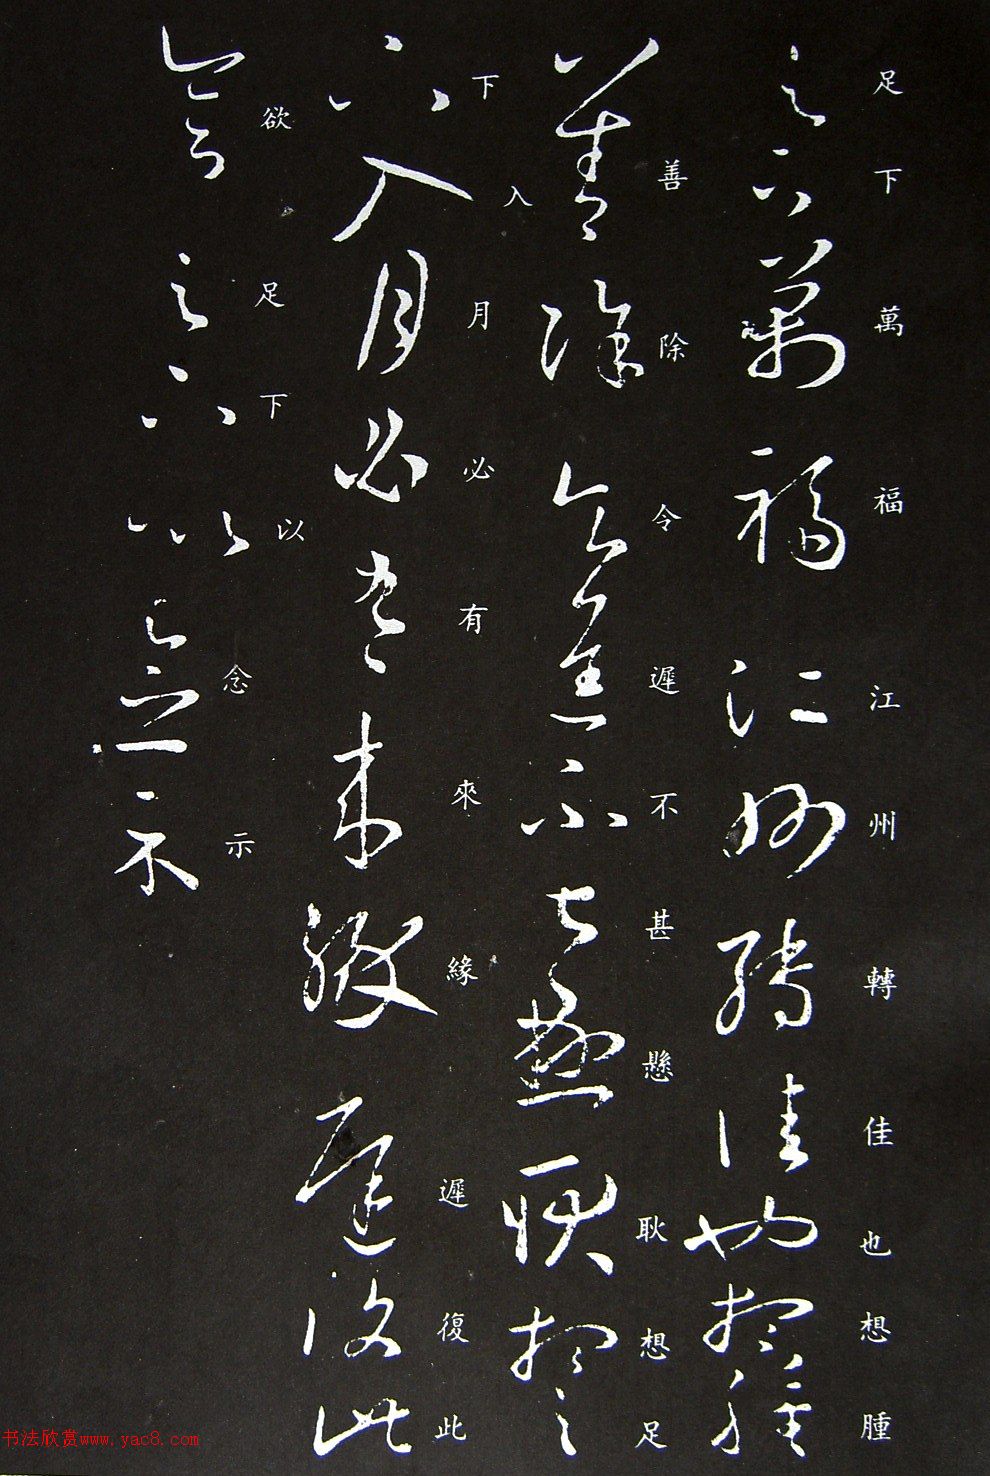 足下萬福江州轉佳也想腫
善除令遲不甚懸耿想足
下入月必有來緣遲復此
欲足下以念示
书法欣赏www.yac8.com